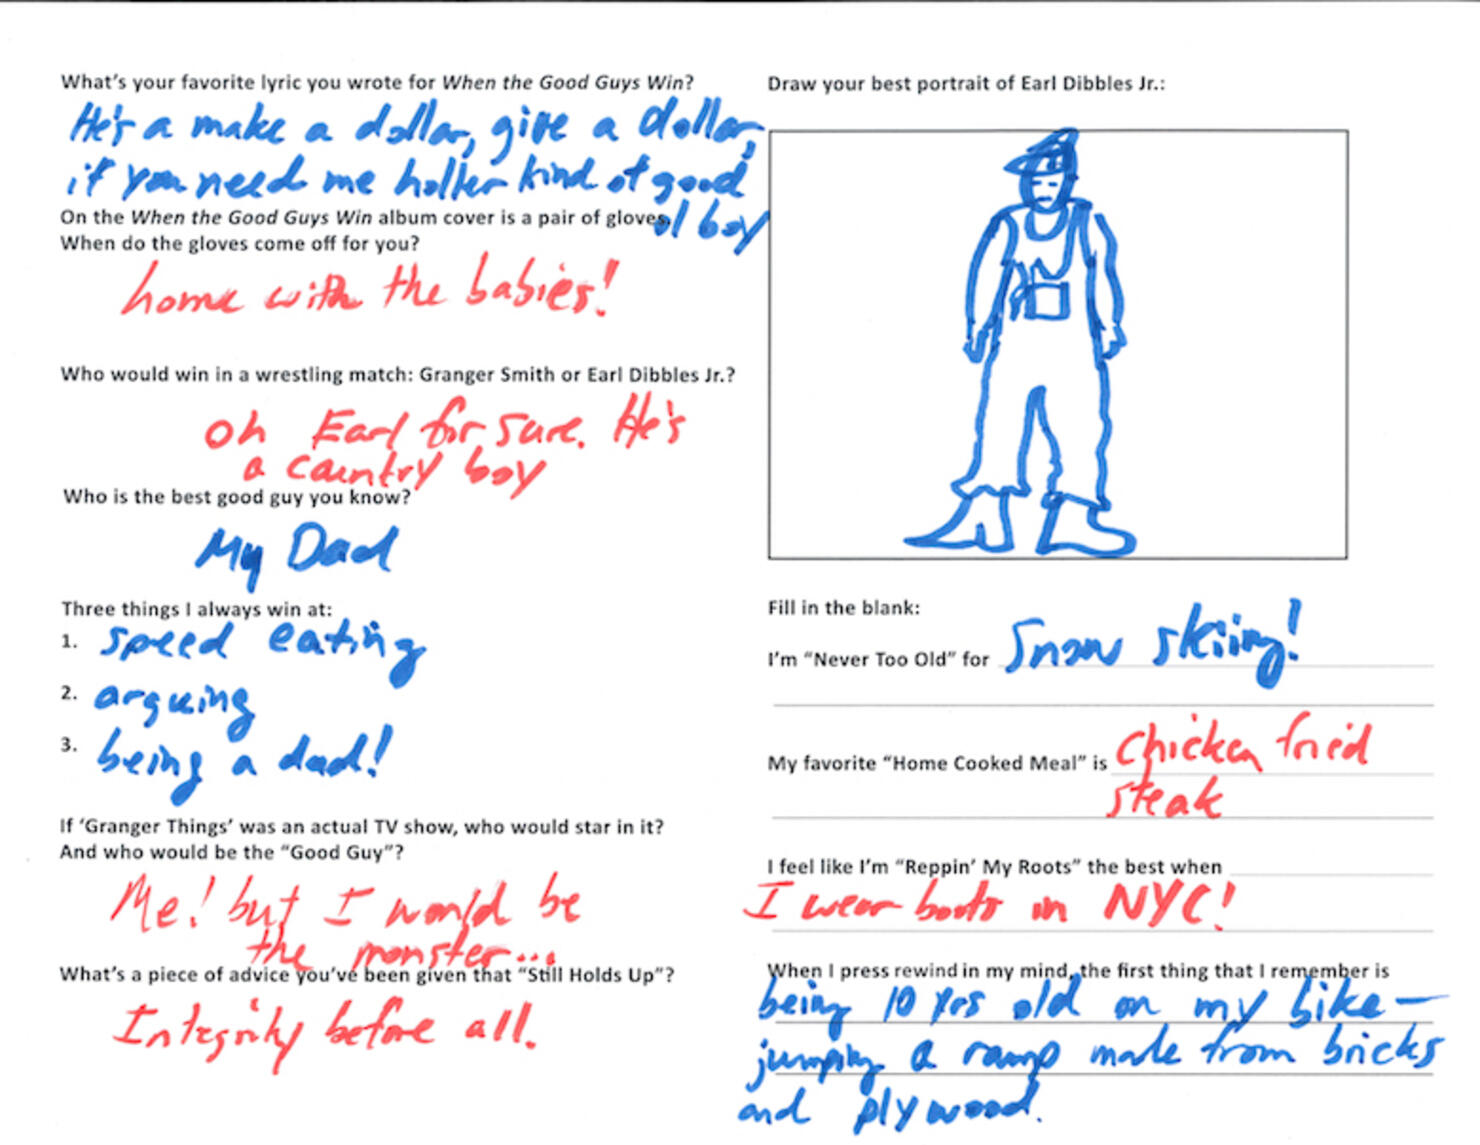 What's your favorite lyric you wrote for When the Good Guys Win?
He's a make a dollar, give a dollar,
if you need me holler kind of good
ol boy
On the When the Good Guys Win album cover is a pair of gloves.
When do the gloves come off for you?
home with the babies!
Who would win in a wrestling match: Granger Smith or Earl Dibbles Jr.?
oh Earl for sure. He's
a country boy
Who is the best good guy you know?
My Dad
Three things I always win at:
1. speed eating
2. arguing
3. being a dad!
If 'Granger Things' was an actual TV show, who would star in it?
And who would be the "Good Guy"?
Me! but I would be
the monster...
What's a piece of advice you've been given that "Still Holds Up"?
Integrity before all.
Draw your best portrait of Earl Dibbles Jr.:
Fill in the blank:
I'm "Never Too Old" for Snow skiing!
My favorite "Home Cooked Meal" is Chicken fried
steak
I feel like I'm "Reppin' My Roots" the best when
I wear boots in NYC!
When I press rewind in my mind, the first thing that I remember is
being 10 yrs old on my bike—
jumping a ramp made from bricks
and plywood.